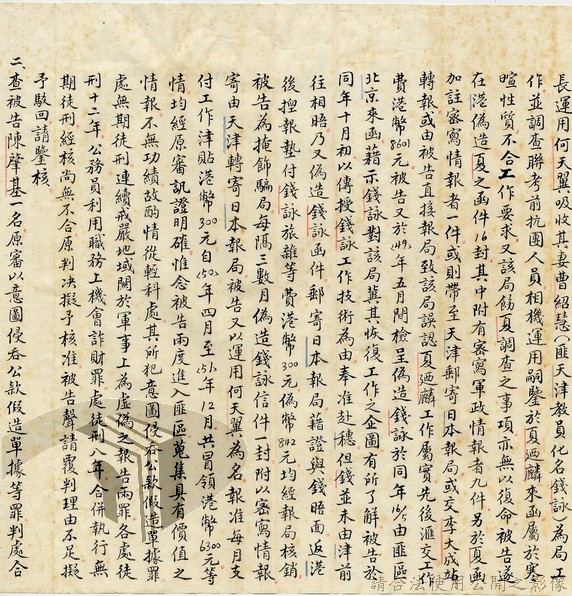 長運用何天翼吸收其妻曹紹慧(匪天津教員化名錢詠)為局工
作並調查聯考前抗團人員相機運用嗣鑒於夏迺麟來函屬於寒
暄性質不合工作要求又該局飭夏調查之事項亦無以復命被告遂
在港偽造夏之函件16封其中附有密寫軍政情報者九件另於夏函
加註密寫情報者一件或則帶至天津郵寄日本報局或交李大成站
轉報或由被告直接報局致該局誤認夏迺麟工作屬實先後滙交工作
費港幣8601元被告又於149年五月間檢呈偽造錢詠於同年15/2由匪區
北京來函藉示錢詠對該局冀其恢復工作之企圖有所了解被告於
同年十月初以傳授錢詠工作技術為由奉准赴穗但錢並未由津前
往相晤乃又偽造錢詠函件郵寄日本報局藉證與錢晤面返港
後揑報墊付錢詠旅雜等費港幣300元偽幣842元均經報局核銷
被告為掩飾騙局每隔三數月偽造錢詠信件一封附以密寫情報
寄由天津轉寄日本報局被告又以運用何天翼為名報准每月支
付工作津貼港幣300元自150年四月至151年12月共冒領港幣6300元等
情均經原審訊證明確惟念被告兩度進入匪區蒐集具有價值之
情報不無功績故酌情從輕科處其所犯意圖侵吞公款假造單據罪
處無期徒刑連續戒嚴地域關於軍事上為虛偽之報告兩罪各處徒
刑十二年公務員利用職務上機會詐財罪處徒刑八年合併執行無
期徒刑經核尚無不合原判決擬予核准被告聲請覆判理由不足擬
予駁回請鑒核
二、查被告陳肇基一名原審以意圖侵吞公款假造單據等罪判處合
請合法使用公開之影像